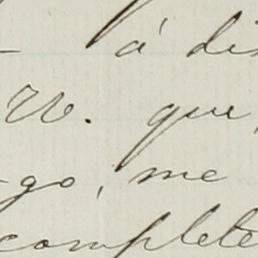 - á di
W. que,
-go, me
complete